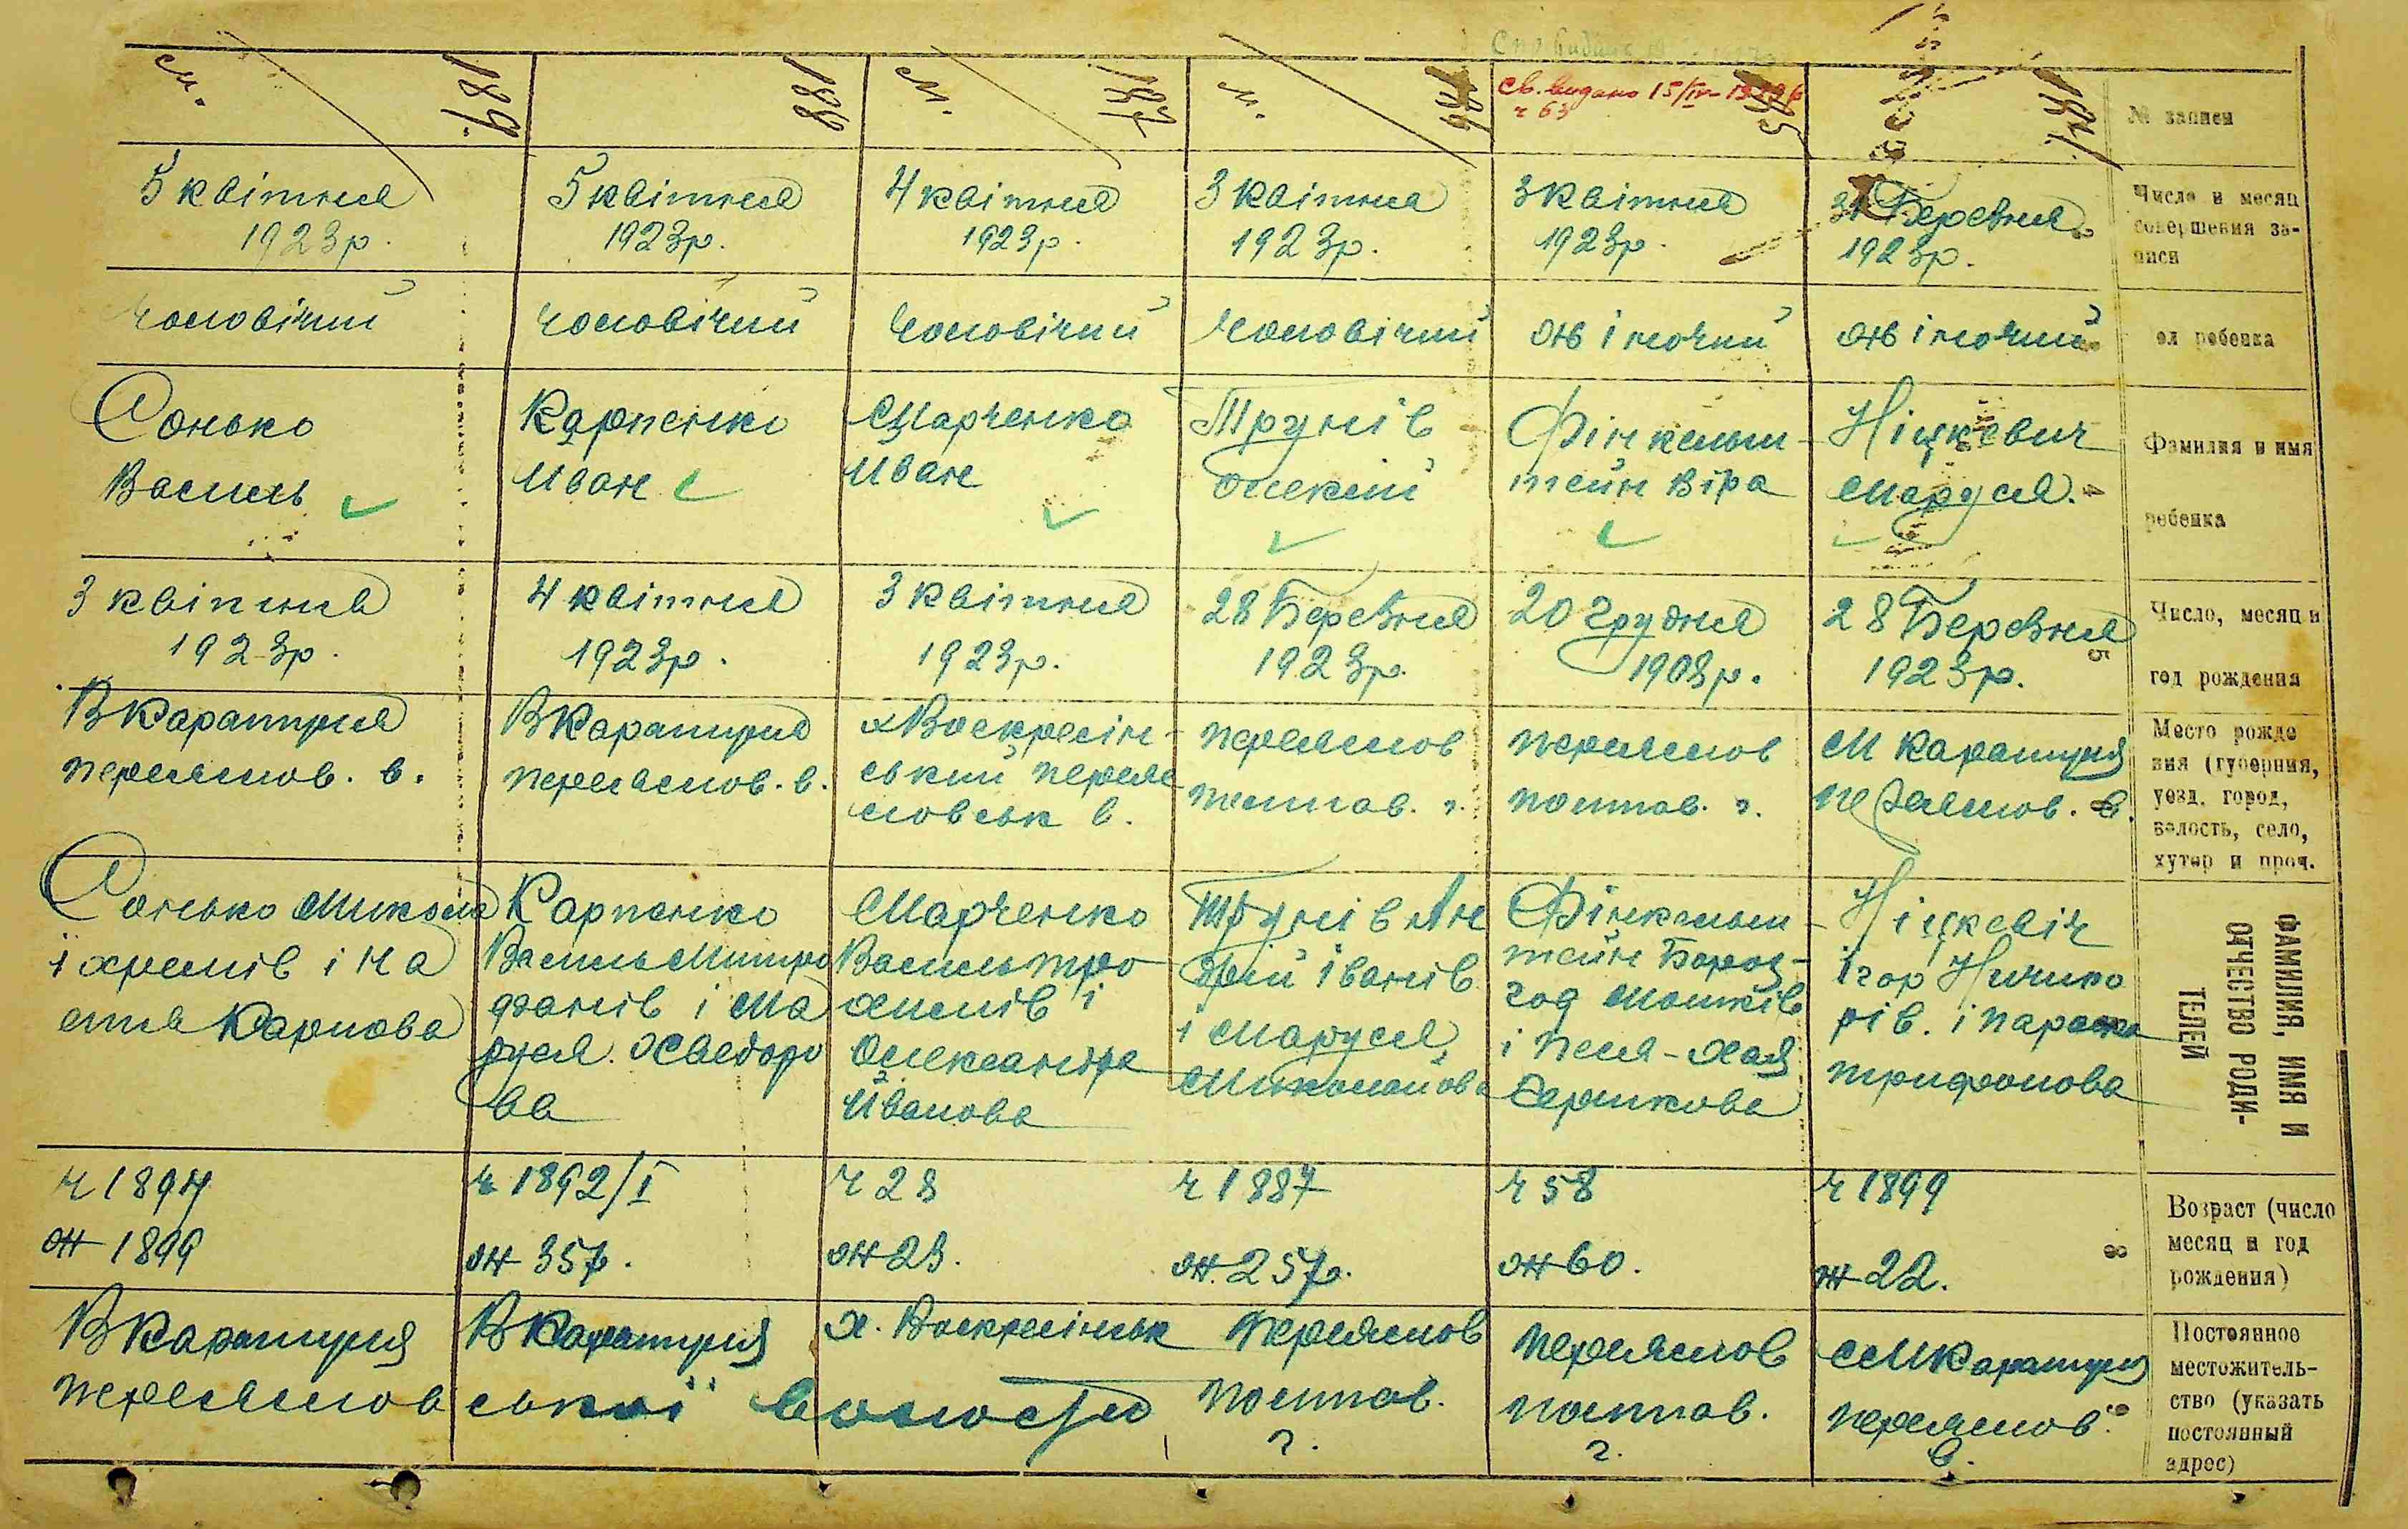 189.
188
187
186
185
184.
№ записи
м.
м.
м.
Св. видано 15/IV-
ч 63
5 квітня
1923р.
5 квітня
1923р.
4 квітня
1923р.
3 квітня
1923р.
3 квітня
1923р.
31 Березня
1923р.
Число и месяц
совершения за-
писи
Чоловічий
Чоловічий
Чоловічий
Чоловічий
Жіночий
Жіночий
ол ребенка
Сонько
Василь
Карпенко
Иван
Марченко
Иван
Трунів
Олексій
Фінкельш-
тейн Віра
Ніцкевич
Маруся.
Фамилия и имя
ребенка
3 квітня
1923р.
4 квітня
1923р.
3 квітня
1923р.
28 Березня
1923р.
20 Грудня
1908р.
28 Березня
1923р.
Число, месяц и
год рождения
В Каратуля
переяслов. в.
В Каратуля
переяслов. в.
х Воскресін-
ський переяс
ловськ в.
переяслов
полтав. г.
переяслов
полтав. г.
М Каратуля
переяслов. в.
Место рожде
ния (губерния,
уезд, город,
волость, село,
хутор и проч.
Сонько Микола
і На
Карпова
Карпенко
Василь Митро
фанів і Ма
руся.
ва
Марченко
Василь Тро
химів і
Олександра
Иванова
Трунів Ан
дрій Іванів
і Маруся
Миколайова
Фінкельш-
тейн
Мошків
і Песя-Хая
Берикова
Ніцкевіч
Ігор Ничипо
рів. і Параска
Трифонова
ФАМИЛИЯ, ИМЯ И
ОТЧЕСТВО РОДИ-
ТЕЛЕЙ
ч 1894
ж 1899
ч 1892/I
ж 35р.
ч 28
ж 23.
ч 1887
ж. 25р.
ч 58
ж 60.
ч 1899
ж 22.
Возраст (число
месяц и год
рождения)
В Каратуля
переяслов
В Каратуля
ської волости
х. Воскресінськ
Переяслов
полтав.
г.
Переяслов
полтав.
г.
М Каратуля
переяслов.
в.
Постоянное
местожитель-
ство (указать
постоянный
адрес)